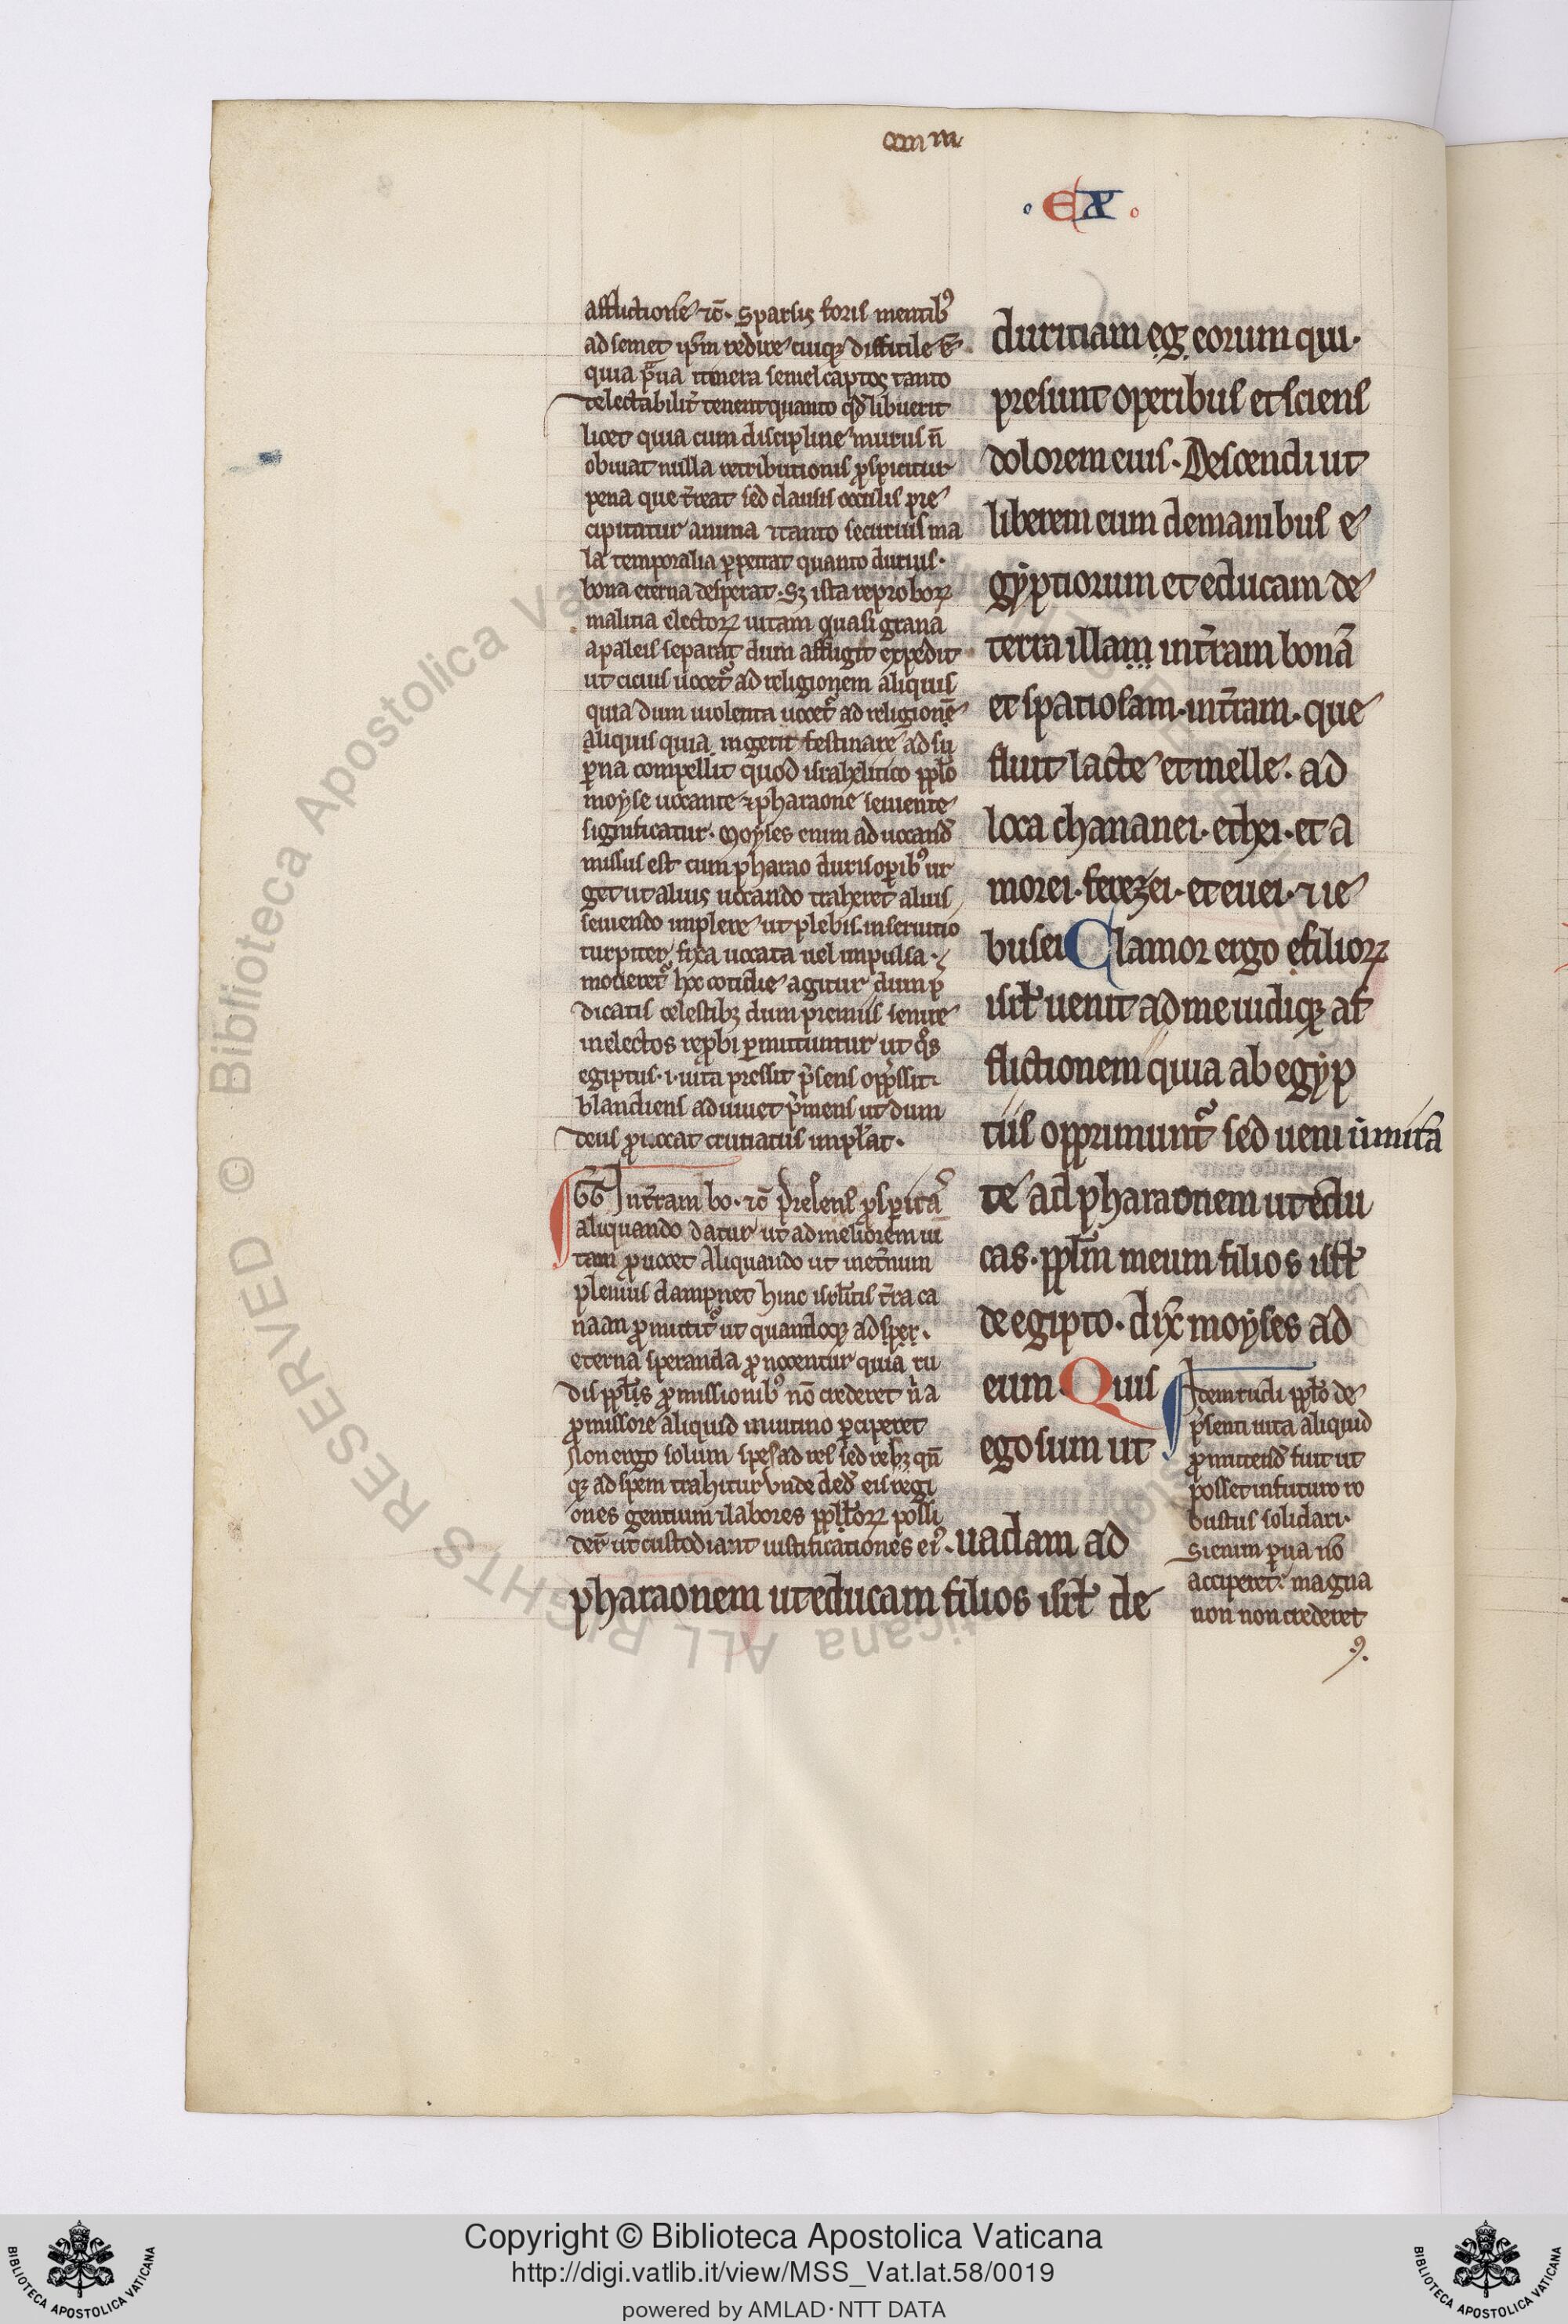 · EX ·
afflictione ⁊c̄. Sparsis foris mentibꝰ
ad semet ip̄m redire cuiqꝫ difficile ē.
quia p̄ua itinera semel captos tanto
delectabilit̄ tenent quanto qd̄ libuerit
licet quia cum discipline murus n̄
obuiat nulla retributionis ꝓspicitur
pena que t̄reat sed clausis occulis pre
cipitatur anima ⁊ tanto securius ma
la temporalia ꝑpetrat quanto durius.
bona eterna desperat. Sꝫ ista reproboꝝ
malitia electoꝝ uitam quasi grana
a paleis separat dum affligit expedit
ut cicius uocet᷑ ad religionem aliquis
quia dum uiolenta uocet᷑ ad religionē
aliquis quia ingerit festinare ad su
ꝑna compellit quod israhelitico pp̄lo
moyse uocante ⁊ pharaone seuiente
significatur. Moyses enim ad uocand̄
missus est cum pharao duris oꝑibꝰ ur
get ut alius uocando traheret alius
seuiendo implere ut plebis in seruitio
turpiter fixa uocata uel impulsa.
moueret᷑ hec cotidie agitur dum p̄
dicatis celestibꝫ dum premiis seuire
in electos rep̄bi ꝑmittuntur ut qͦs
egiptus .i. uita pressit p̄sens opp̄ssit
blandiens adiuuet p̄mens ut dum
deus ꝓuocat cruciatus implēat.
GG In t̄ram bo. ⁊c̄ Presens ꝓsꝑitas
aliquando datur ut ad meliorem ui
tam ꝓuocet Aliquando ut in et̄num
plenius dampnet hinc isrl̄itis t̄ra ca
naan ꝓmittit᷑ ut quandoqꝫ ad sper.
eterna speranda ꝓuocentur quia ru
dis ppl̄s ꝓmissionibꝰ nō crederet n̄ a
ꝓmissore aliquid in uicino ꝑciperet
Non ergo solum spes ad rem sed rebꝫ qn̄
qꝫ ad spem trahitur Vnde ded̄ eis regi
ones gentium ⁊ labores ppl̄oꝝ possi
der̄ ut custodiant iustificationes eiꝰ.
duritiam eg eorum qui.
presunt operibus et sciens
dolorem eius. Descendi ut
liberem eum de manibus e
gyptiorum et educam de
terra illam in t̄ram bonā
et spatiosam. in t̄ram. que
fluit lacte et melle. ad
loca chananei. ethei. et a
morei. ferezei. et euei. ⁊ ie
busei Clamor ergo e filioꝝ
isrl̄ uenit ad me uidiqꝫ af
flictionem quia ab egyp
tiis opprimunt᷑ sed ueni ⁊ mittā
te ad pharaonem ut edu
cas. ppl̄m meum filios isrl̄
de egipto. dix̄ moyses ad
eum Quis
ego sum ut
uadam ad
pharaonem ut educam filios isrl̄ de
Item rudi ppl̄o de
p̄senti uita aliquid
ꝓmittend̄ fuit ut
posset in futuro ro
bustus solidari.
Si enim ꝑua nō
acciperet. magna
non non crederet
Copyright © Biblioteca Apostolica Vaticana
http://digi.vatlib.it/view/MSS_Vat.lat.58/0019
powered by AMLAD·NTT DATA
© Biblioteca Apostolica Vaticana ALL RIGHTS RESERVED
BIBLIOTECA APOSTOLICA VATICANA
BIBLIOTECA APOSTOLICA VATICANA